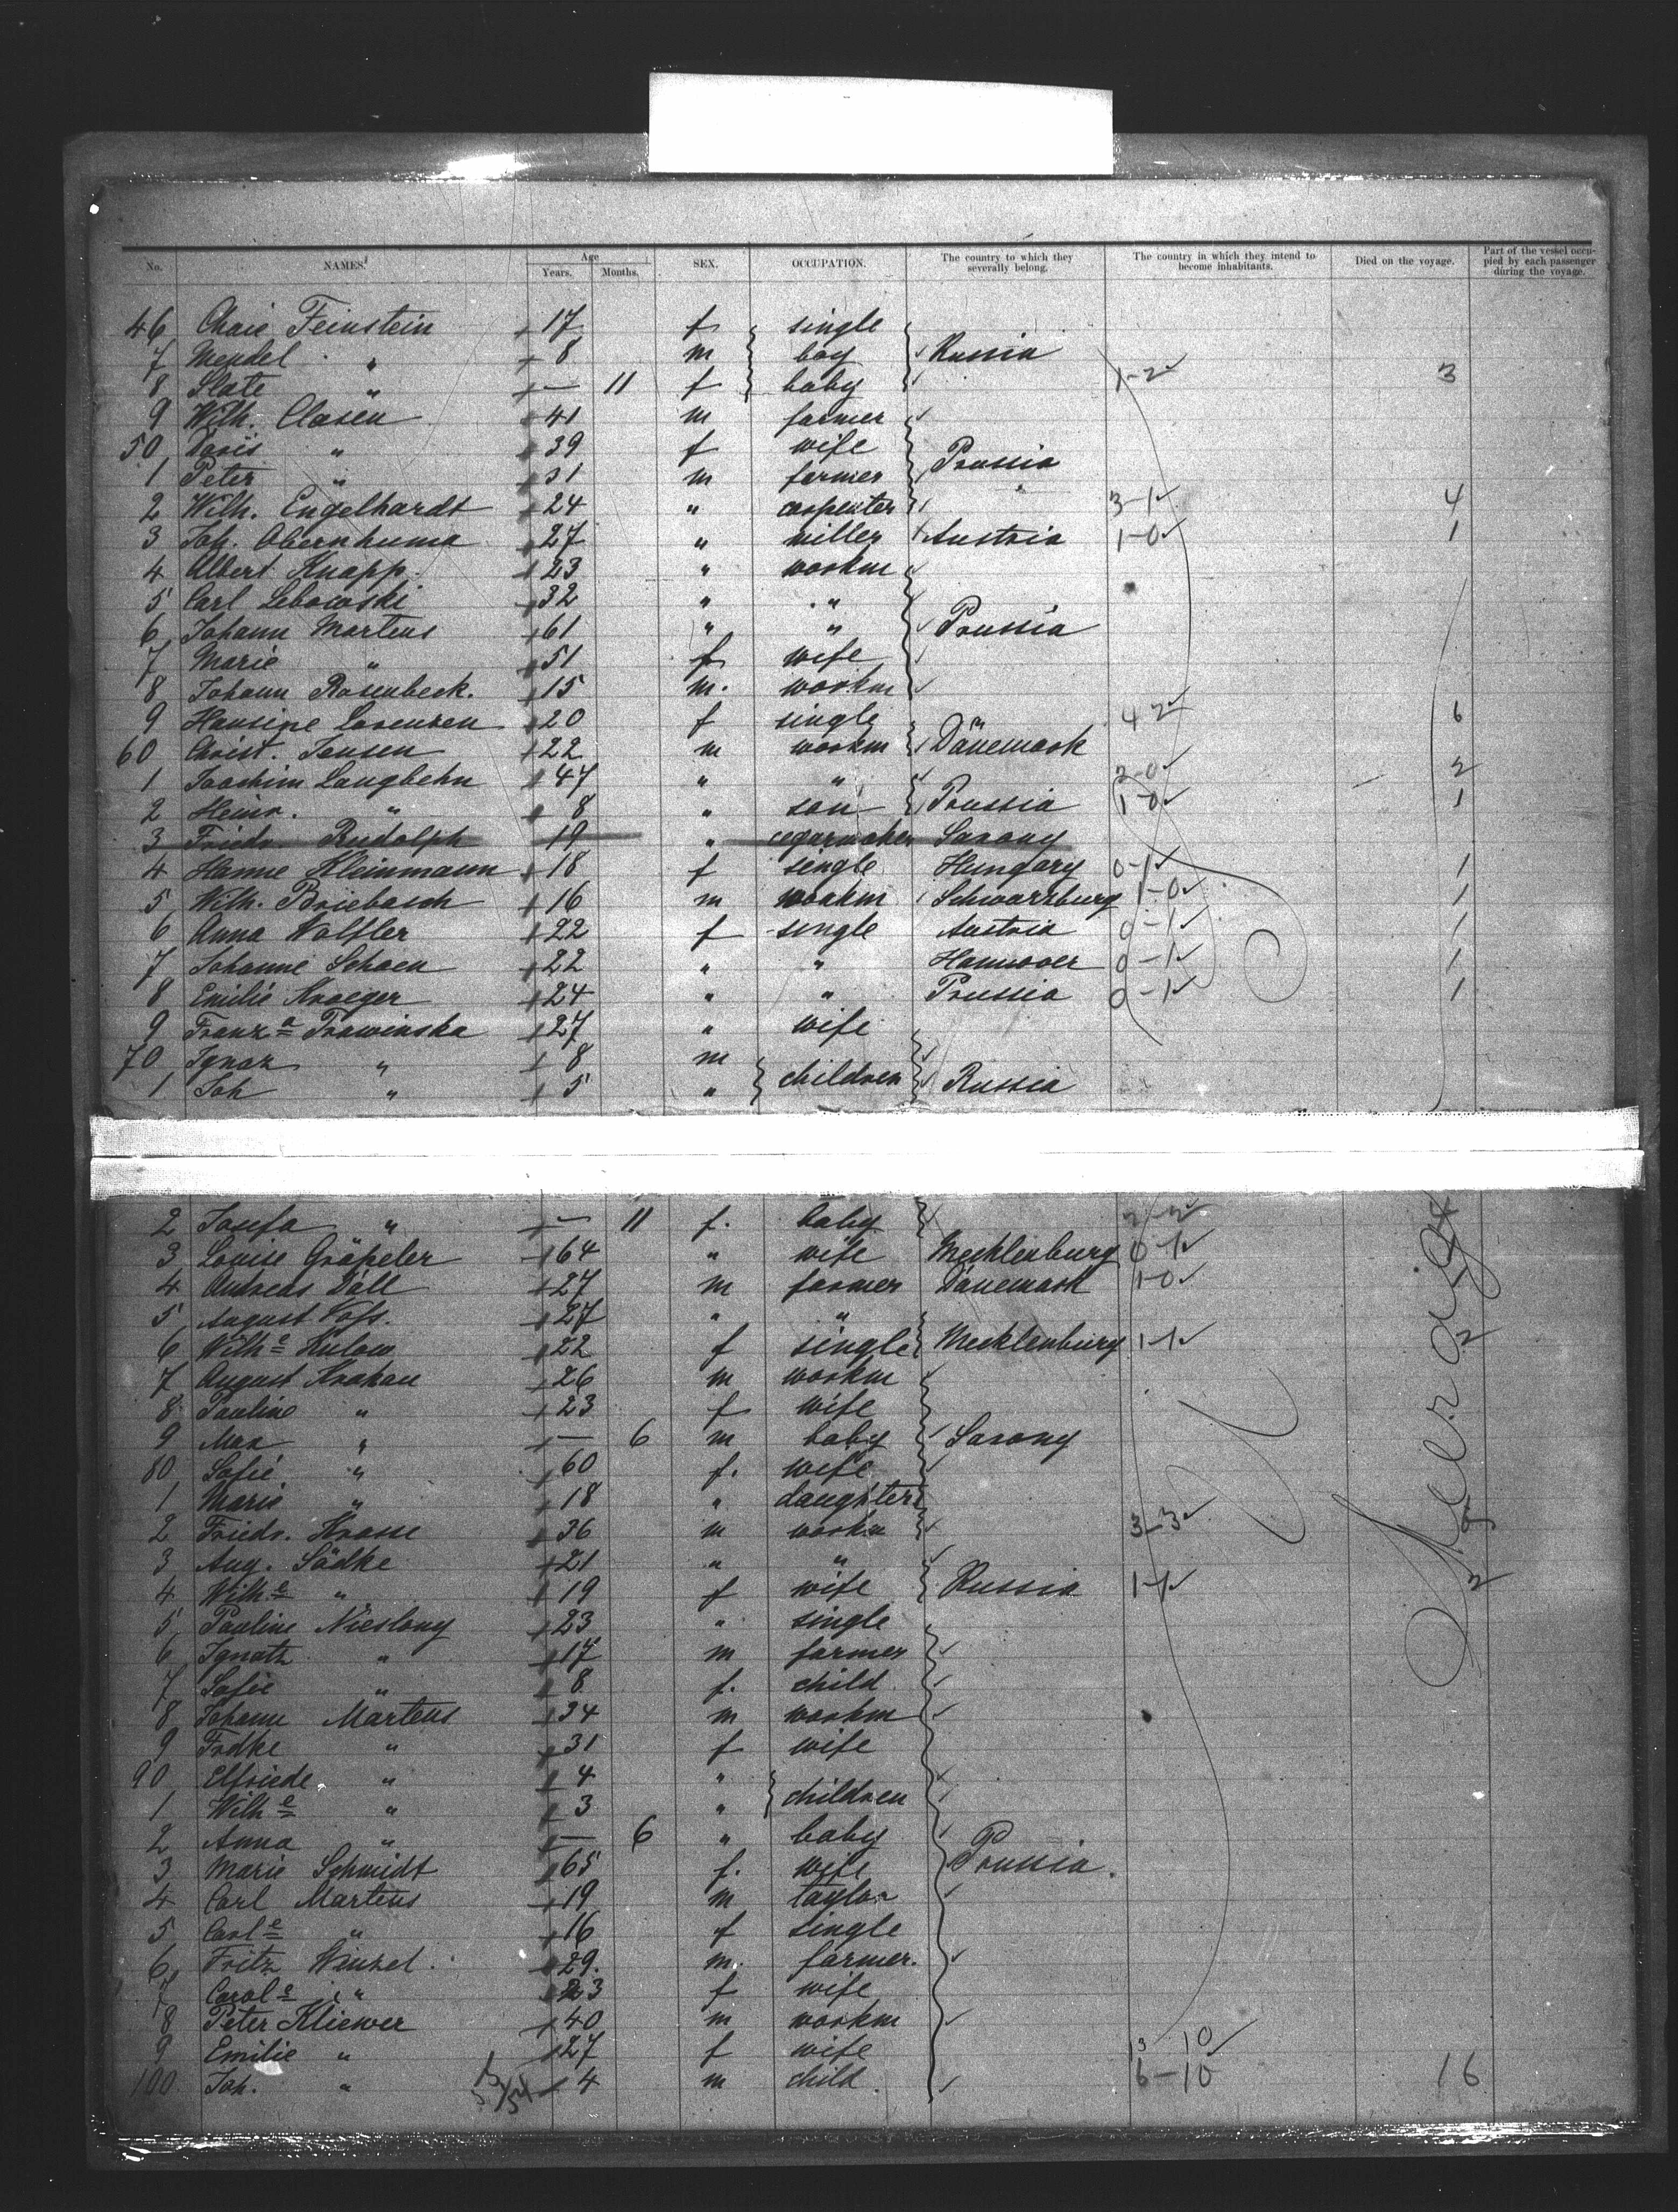 No. NAMES. Age Years. Months. SEX. OCCUPATION. The country to which they severally belong. The country in which they intend to become inhabitants. Died on the voyage. Part of the vessel occupied by each passenger during the voyage.
46 Chaie Feinstein 17 f single
7 Mendel " 8 m boy Russia
8 Slate " — 11 f baby 1-2 3
9 Wilh. Clasen 41 m farmer
50 Doris " 39 f wife Prussia
1 Peter " 31 m farmer
2 Wilh. Engelhardt 24 " carpenter " 3-1 4
3 Joh. 27 " miller Austria 1-0 1
4 Albert Knapp 23 " workm
5 Carl Lebowski 32 " "
6 Johann Martens 61 " " Prussia
7 Marie " 51 f wife
8 Johann Rosenbeck. 15 m. workm
9 Hansine Lorenzen 20 f single 4 2 6
60 Christ. Jensen 22 m workm Dänemark
1 Joachim Langbehn 47 " " 2-0 2
2 Heinr. " 8 " son Prussia 1-0 1
3 Friedr. Rudolph 19 " cegarmaker Saxony
4 Hanne Kleinmann 18 f single Hungary 0-1 1
5 Wilh. Briebasch 16 m workm Schwarzburg 1-0 1
6 Anna Wolfler 22 f single Austria 0-1 1
7 Johanne Schoen 22 " " Hannover 0-1 1
8 Emilie Kroeger 24 " " Prussia 0-1 1
9 Franza Trawinska 27 " wife
70 Ignaz " 8 m
1 Joh " 5 " children Russia
2 Josefa " — 11 f. baby 2-2 4
3 Louise Gräpeler 64 " wife Mecklenburg 0-1
4 Andreas Däll 27 m farmer Dänemark 1-0
5 August Voss. 27 " "
6 Wilhe Kulow 22 f single Mecklenburg 1-1 2
7 August Krakau 26 m workm
8 Pauline " 23 f wife
9 Max " — 6 m baby Saxony
80 Sofie " 60 f. wife
1 Marie " 18 " daughter
2 Friedr. Krasse 36 m workm 3-3 6
3 Aug. Lödke 21 " "
4 Wilh.e " 19 f wife Russia 1-1 2
5 Pauline Nieslony 23 " single
6 Ignatz " 17 m farmer
7 Sofie " 8 f. child
8 Johann Martens 34 m workm
9 Frdke " 31 f wife
90 Elfriede " 4 "
1 Wilhe " 3 " children
2 Anna " — 6 " baby
3 Marie Schmidt 65 f. wife Prussia.
4 Carl Martens 19 m taylor
5 Carle " 16 f single
6 Fritz Winzel. 29. m. farmer.
7 Carole " 23 f wife
8 Peter Kliewer 40 m workm
9 Emilie " 27 f wife 10
100 Joh. " 4 m child 6-10 16
Steerage